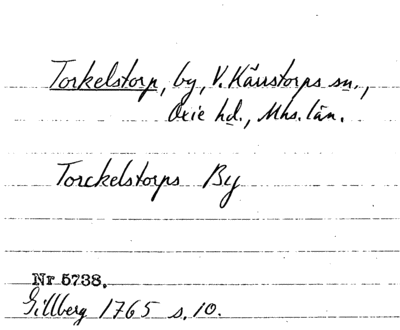 Torkelstorp, by, V. Kärrstorps sn.,
Oxie hd., Mhs. län.
Torckelstorps By
Nr 5738.
Gillberg 1765 s. 10.